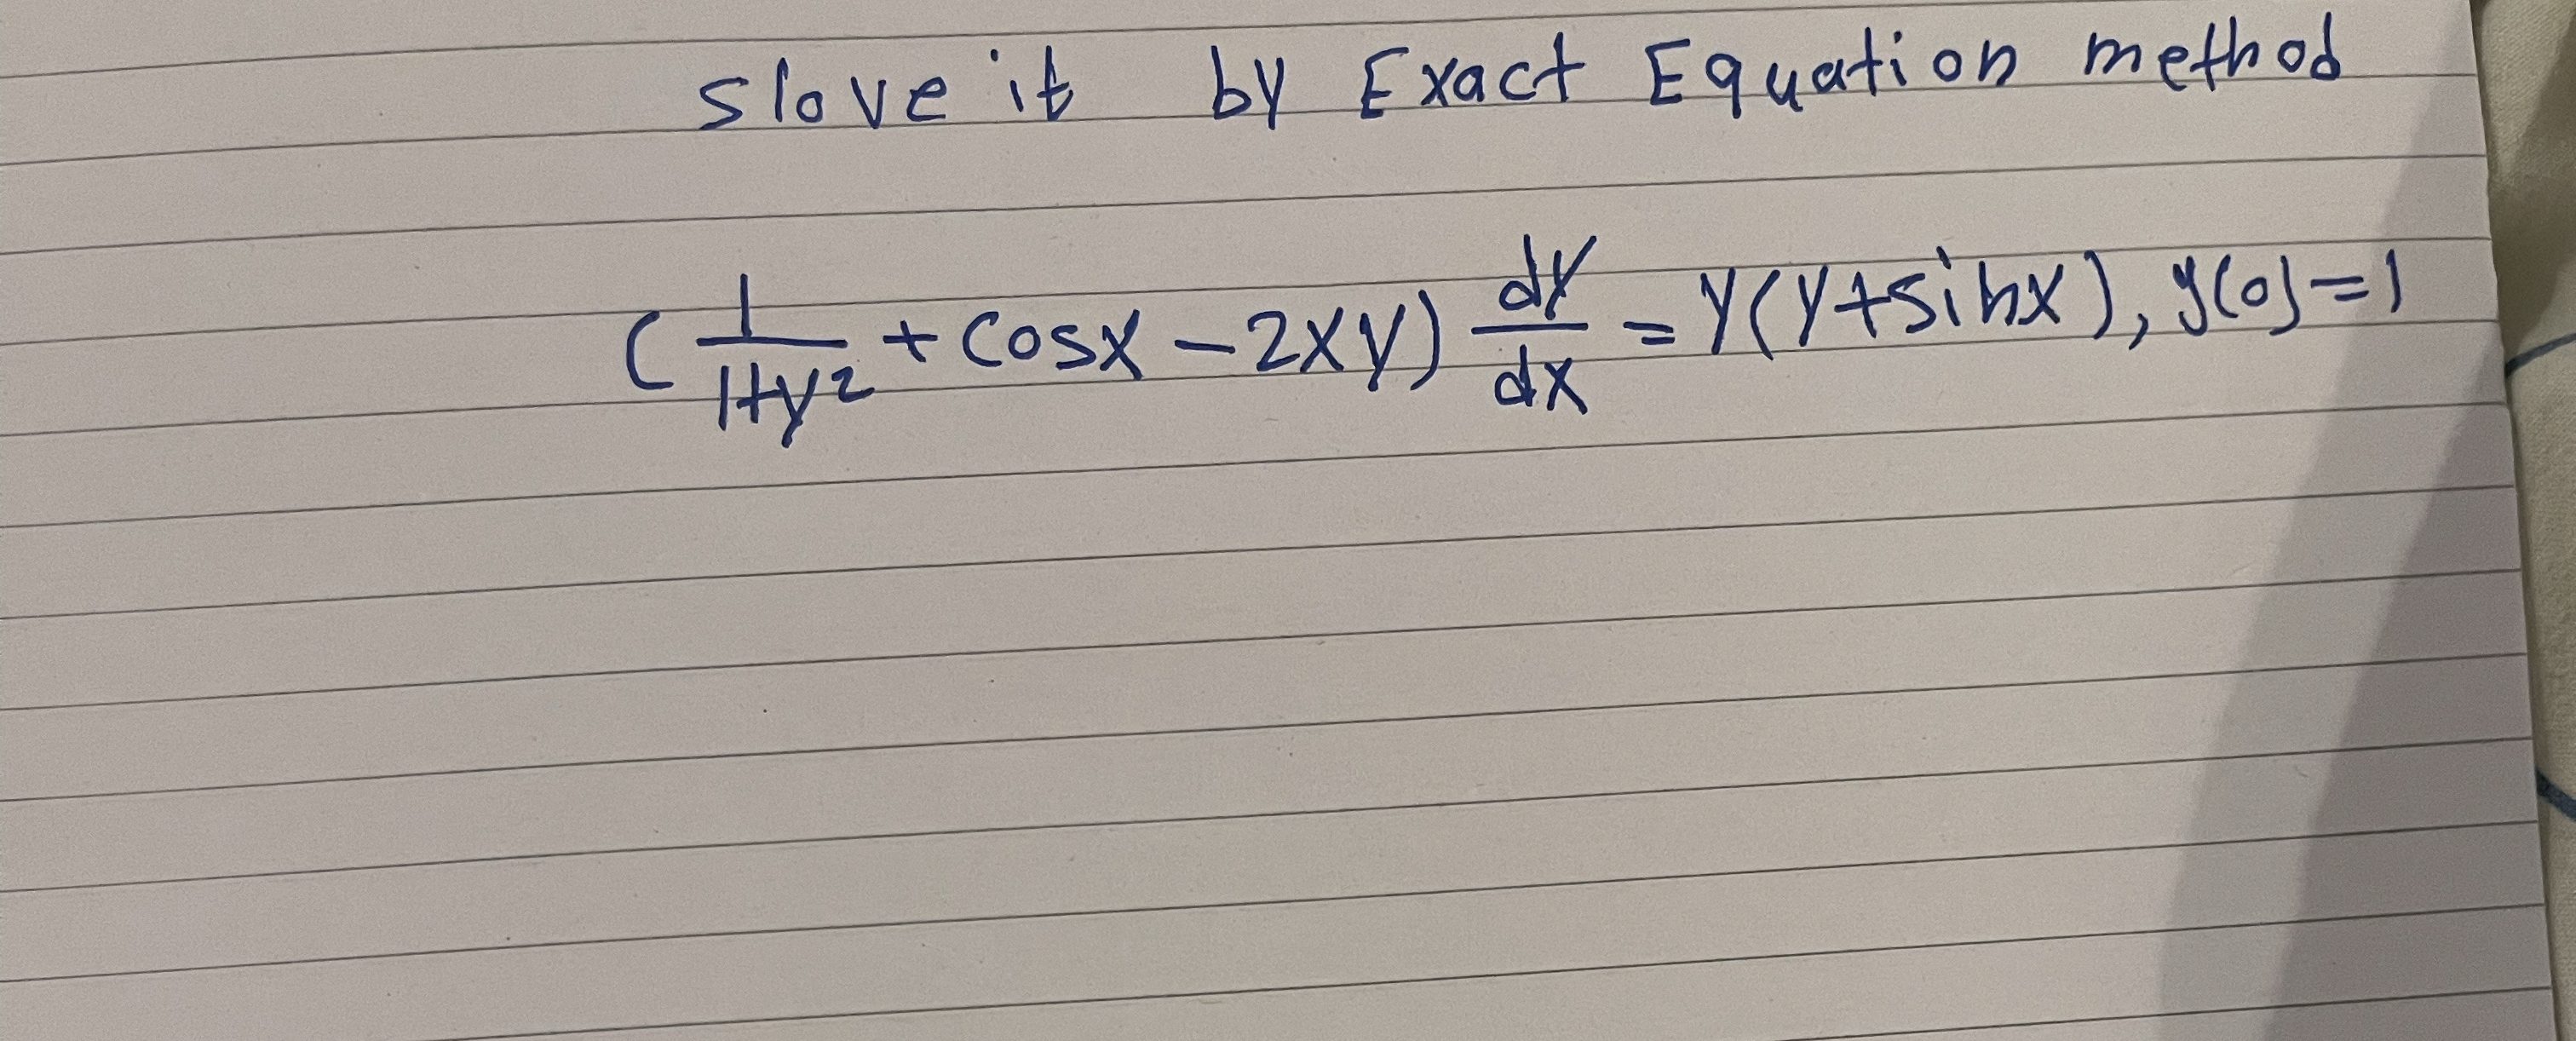 slove it by Exact Equation method
(1/(1+y²) + cosx - 2xy) dy/dx = y(y+sinx), y(0)=1